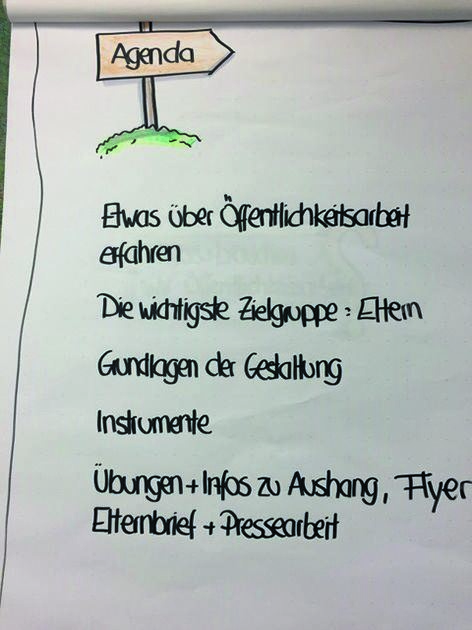 Agenda
Etwas über Öffentlichkeitsarbeit
erfahren
Die wichtigste Zielgruppe: Eltern
Grundlagen der Gestaltung
Instrumente
Übungen + Infos zu Aushang, Flyer
Elternbrief + Pressearbeit